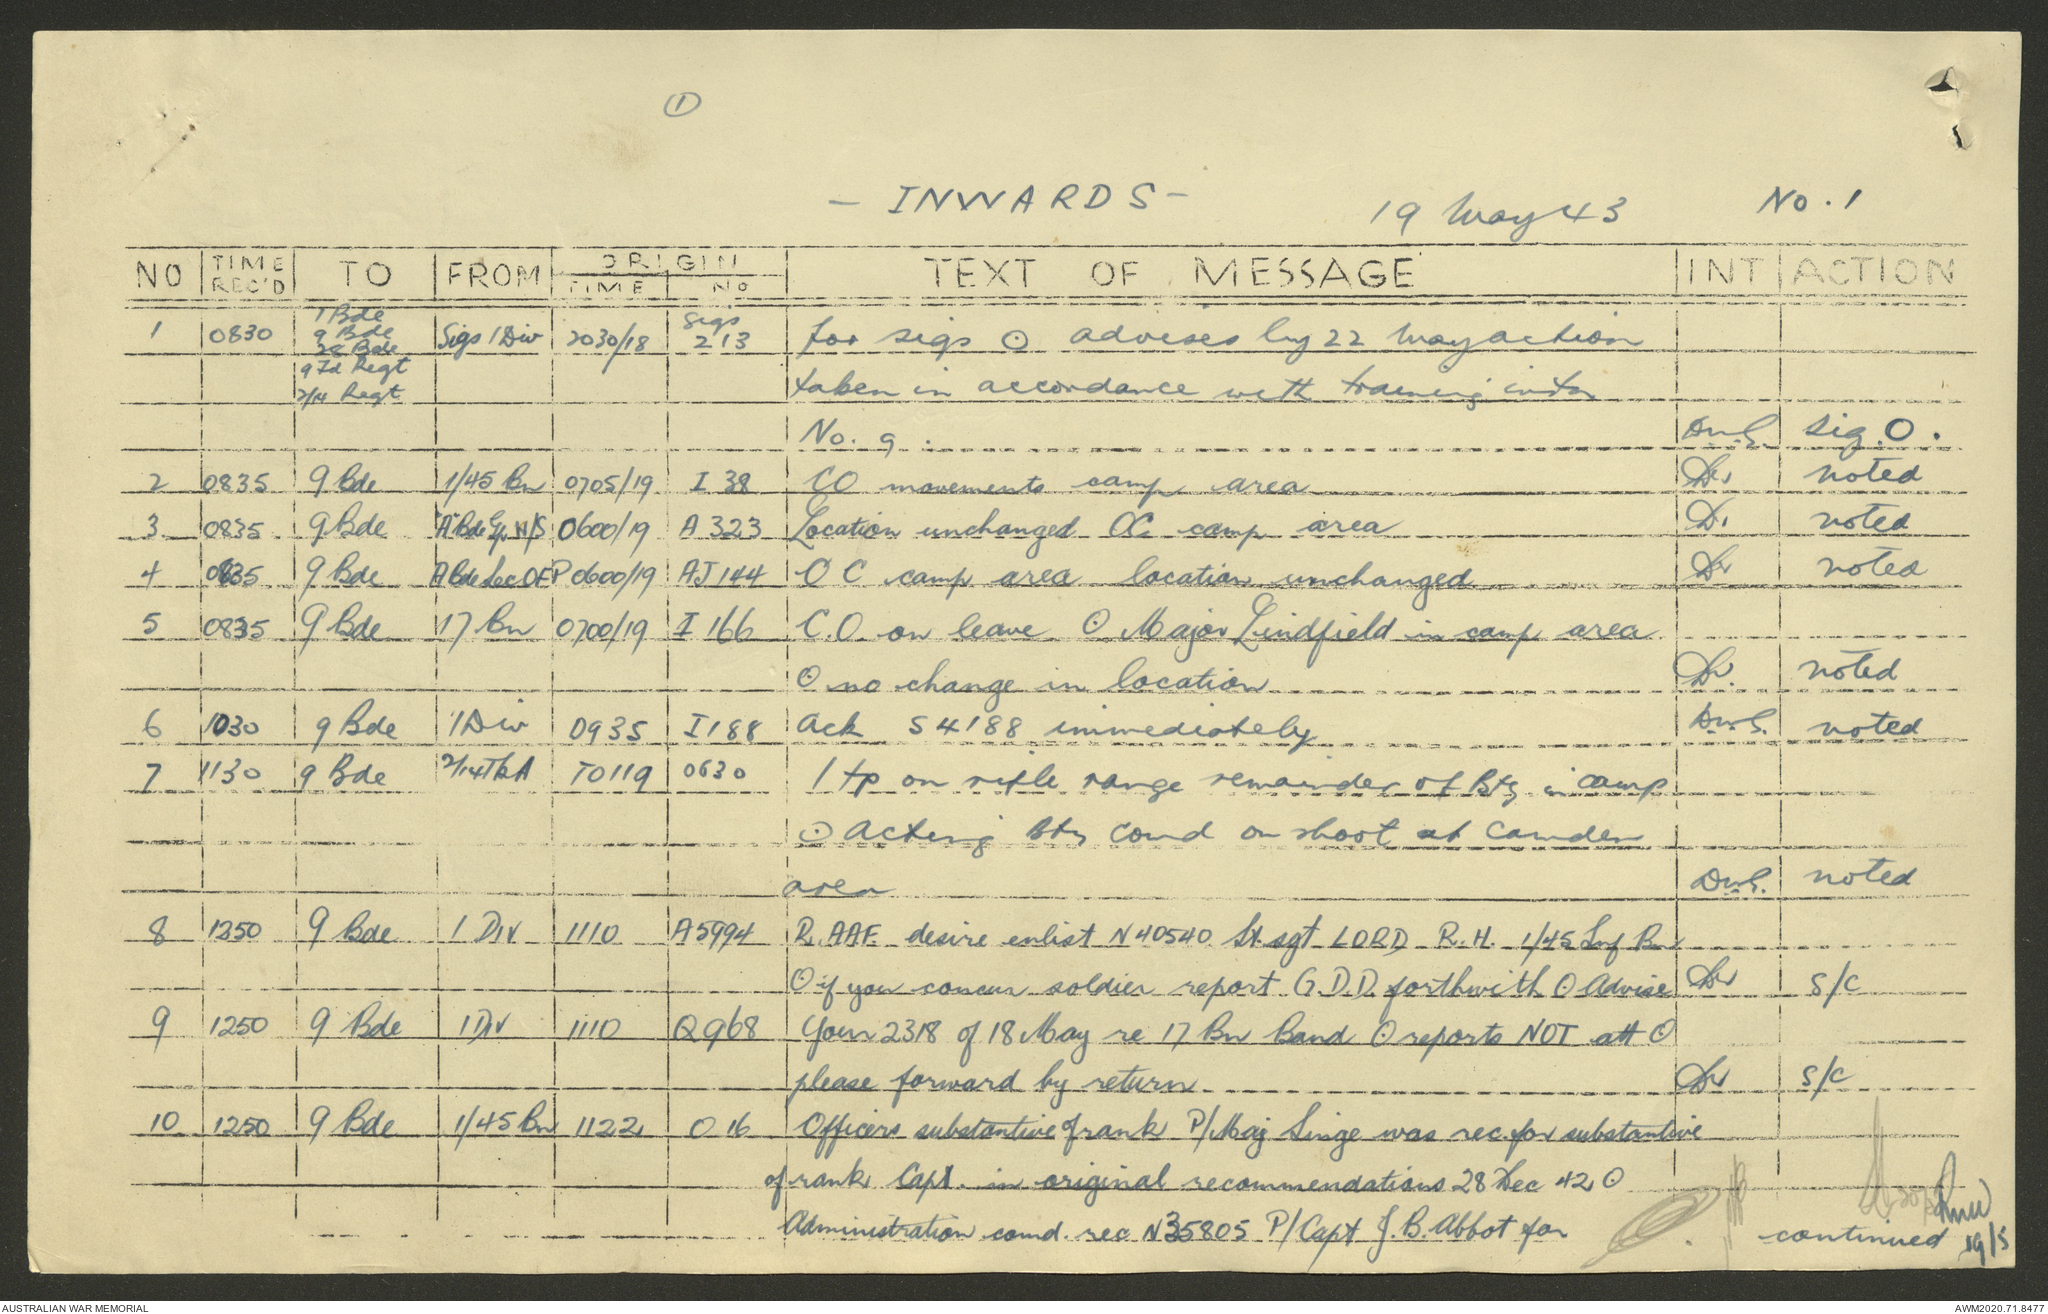 1
- INWARDS -
19 May 43
No. 1
NO TIME REC'D TO FROM ORIGIN TIME No TEXT OF MESSAGE INT ACTION
1 0830 1 Bde 9 Bde 28 Bde 9 Fd Regt 2/14 Regt Sigs 1 Div 2030/18 Sigs 213 for sigs ⊙ advises by 22 May action
taken in accordance with training instn
No. 9. DWS. Sig.O.
2 0835 9 Bde 1/45 Bn 0705/19 I 38 CO movements camp area noted
3 0835 9 Bde "A" Bde Gp W/S 0600/19 A 323 Location unchanged OC camp area noted
4 0835 9 Bde A Bde Sec OFP 0600/19 AJ 144 OC camp area location unchanged noted
5 0835 9 Bde 17 Bn 0700/19 I 166 C.O. on leave ⊙ Major Lindfield in camp area
⊙ no change in location noted
6 1030 9 Bde 1 Div 0935 I188 Ack S4188 immediately DWS. noted
7 1130 9 Bde 2/14 TkA TO119 0630 1 tp on rifle range remainder of Bty in camp
⊙ acting Bty Comd on shoot at Camden
area DWS. noted
8 1250 9 Bde 1 Div 1110 A5994 R.AAF. desire enlist N40540 St. sgt LORD R.H. 1/45 Inf Bn
⊙ if you concur soldier report G.D.D. forthwith ⊙ Advise S/C
9 1250 9 Bde 1 Div 1110 Q968 Your 2318 of 18 May re 17 Bn Band ⊙ reports NOT att ⊙
please forward by return S/C
10 1250 9 Bde 1/45 Bn 1122 O 16 Officers substantive of rank P/Maj Singe was rec. for substantive
of rank Capt. in original recommendations 28 Dec 42 ⊙
Administration comd. rec N35805 P/Capt J.B. Abbot for
continued
19/5
AUSTRALIAN WAR MEMORIAL
AWM2020.71.8477